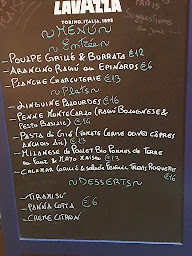 LAVAZZA
TORINO, ITALIA, 1895
~ MENÙ ~
Entrée
- POULPE GRILLÉ & BURRATA €12
- ARANCINO RAGÙ OU EPINARDS €6
- PLANCHE CHARCUTERIE €13
~ PLATS ~
- LINGUINE PALOURDES €16
- PENNE MONTECARLO (RAGÙ BOLOGNESE &
PESTO BASILIC) €16
- PASTA DI GIÒ (TOMATE CERISE OLIVES CÂPRES
ANCHOIS AIL) €13
- MILANESE DE POULET BIO POMMES DE TERRE
AU FOUR & MAYO MAISON €13
- CALAMAR GRILLÉ & SALADE FENOUIL ROQUETTE
€16
~ DESSERTS ~
- TIRAMISÙ
- PANNA COTTA €6
- CRÈME CITRON